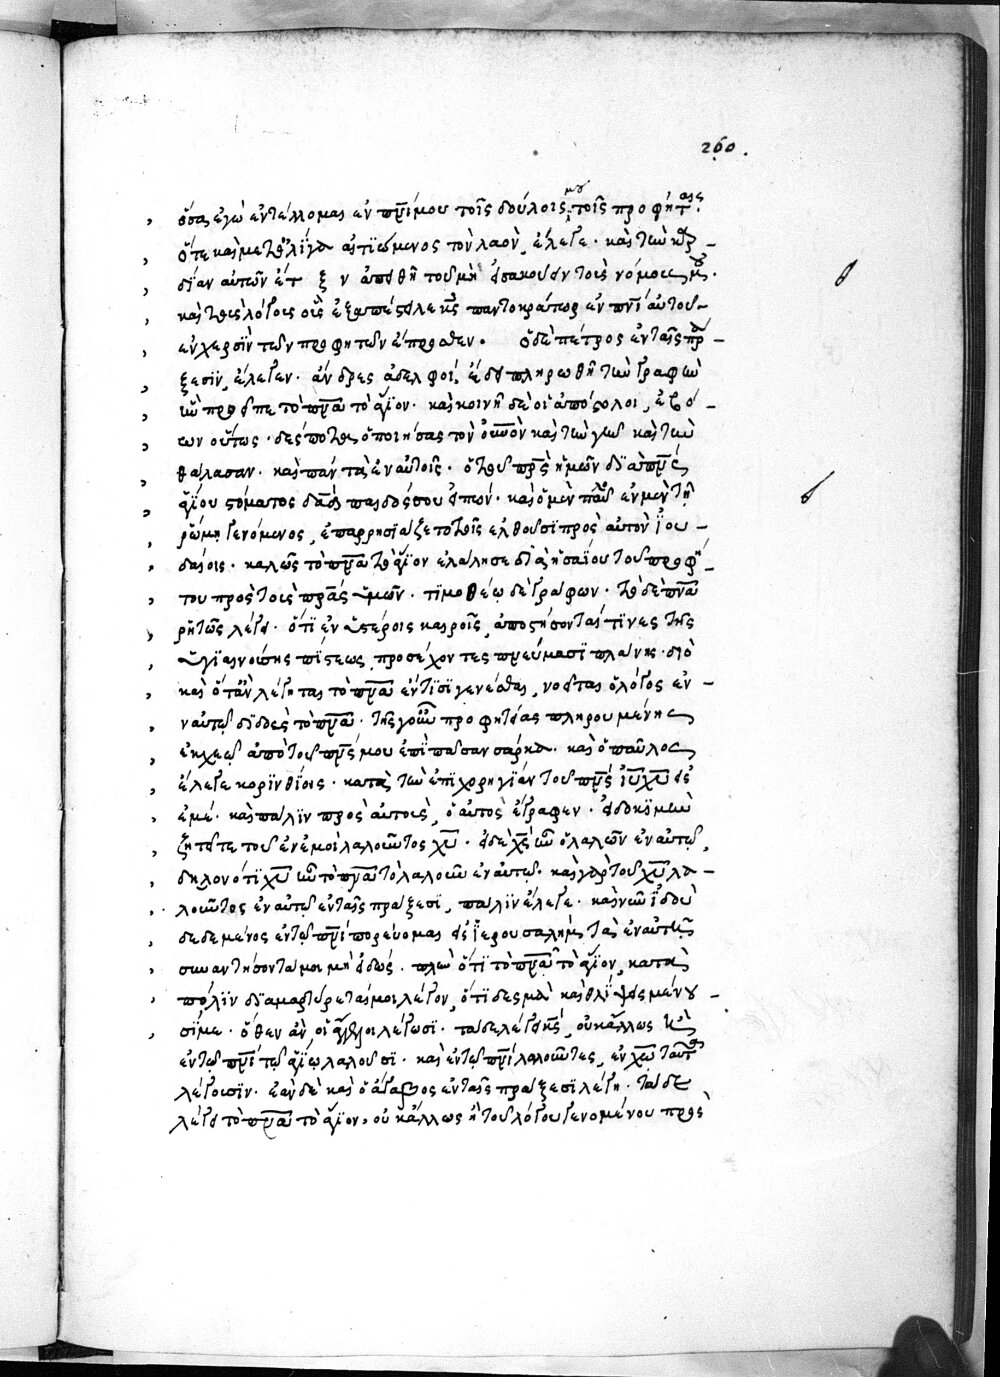 260.
ὅσα ἐγὼ ἐντέλλομαι ἐν πνι μου τοῖς δούλοις μου τοῖς προφήταις.
ὅτε καὶ μετ' ὀλίγα αἰτιώμενος τὸν λαὸν, ἔλεγε. καὶ τὴν καρ-
δίαν αὐτῶν ἔτ ξ ν ἀπειθῆ τοῦ μὴ εἰσακούειν τοὺς νόμους μου.
καὶ τοὺς λόγους οὓς ἐξαπέστειλε κς παντοκράτωρ ἐν πνι αὐτοῦ-
ἐν χερσὶν τῶν προφητῶν ἔμπροσθεν. ὁ δὲ πέτρος ἐν ταῖς πρά-
ξεσιν, ἔλεγεν. ἄνδρες ἀδελφοί, ἔδει πληρωθῆναι τὴν γραφὴν
ἣν προεῖπε τὸ πνα τὸ ἅγιον. καὶ κοινῆ δὲ οἱ ἀπόστολοι, ἐβό-
ων οὕτως. δέσποτα ὁ ποιήσας τὸν οὐνὸν καὶ τὴν γῆν καὶ τὴν
θάλασαν. καὶ πάντα τὰ ἐν αὐτοῖς. ὁ τοῦ πρς ἡμῶν διὰ πνς
ἁγίου στόματος δαδ παιδός σου εἰπών. καὶ ὁ μὲν παῦλος ἐν μὲν τῆ
ῥώμη γενόμενος, ἐπαρρησιάζετο τοῖς ἐλθοῦσι πρὸς αὐτὸν ἰου-
δαίοις. καλῶς τὸ πνα τὸ ἅγιον ἐλάλησε διὰ ἡσαΐου τοῦ προφή-
του πρὸς τοὺς πρας ὑμῶν. τιμοθέω δὲ γράφων. τὸ δὲ πνα
ῥητῶς λέγει. ὅτι ἐν ὑστέροις καιροῖς, ἀποστήσονταί τινες τῆς
ὑγιαινούσης πίστεως, προσέχοντες πνεύμασι πλάνης. διὸ
καὶ ὅταν λέγηται τὸ πνα ἔν τισι γενέσθαι, νοεῖται ὁ λόγος ἐν-
ν αὐτῶ διδοὺς τὸ πνα. τῆς γοῦν προφητείας πληρουμένης
ἐκχεῶ ἀπὸ τοῦ πνς μου ἐπὶ πᾶσαν σάρκα. καὶ ὁ παῦλος
ἔλεγε κορινθίοις. κατὰ τὴν ἐπιχορηγίαν τοῦ πνς ιυ χυ εἰς
ἐμέ. καὶ πάλιν πρὸς αὐτοὺς, ὁ αὐτὸς ἔγραφεν. εἰ δοκιμὴν
ζητεῖτε τοῦ ἐν ἐμοὶ λαλοῦντος χυ. εἰ δὲ χς ἦν ὁ λαλῶν ἐν αὐτῶ,
δηλονότι χυ ἦν τὸ πνα τὸ λαλοῦν ἐν αὐτῶ. καὶ γὰρ τοῦ χυ λα-
λοῦντος ἐν αὐτῶ ἐν ταῖς πράξεσι, πάλιν ἔλεγε. καὶ νῦν ἰδοὺ
δεδεμένος ἐν τῶ πνι πορεύομαι εἰς ἱερουσαλήμ, τὰ ἐν αὐτῆ
συναντήσοντά μοι μὴ εἰδώς. πλὴν ὅτι τὸ πνα τὸ ἅγιον, κατὰ
πόλιν διαμαρτύρεταί μοι λέγον, ὅτι δεσμὰ καὶ θλίψεις μένου-
σί με. ὅθεν ἂν οἱ ἅγιοι λέγωσι. τάδε λέγει κς, οὐκ ἄλλως ἢ
ἐν τῶ πνι τῶ ἁγίω λαλοῦσι. καὶ ἐν τῶ πνι λαλοῦντες, ἐν χω ταῦτα
λέγουσιν. ἐὰν δὲ καὶ ὁ ἄγαβος ἐν ταῖς πράξεσι λέγη. τάδε
λέγει τὸ πνα τὸ ἅγιον, οὐκ ἄλλως ἢ τοῦ λόγου γενομένου πρὸς